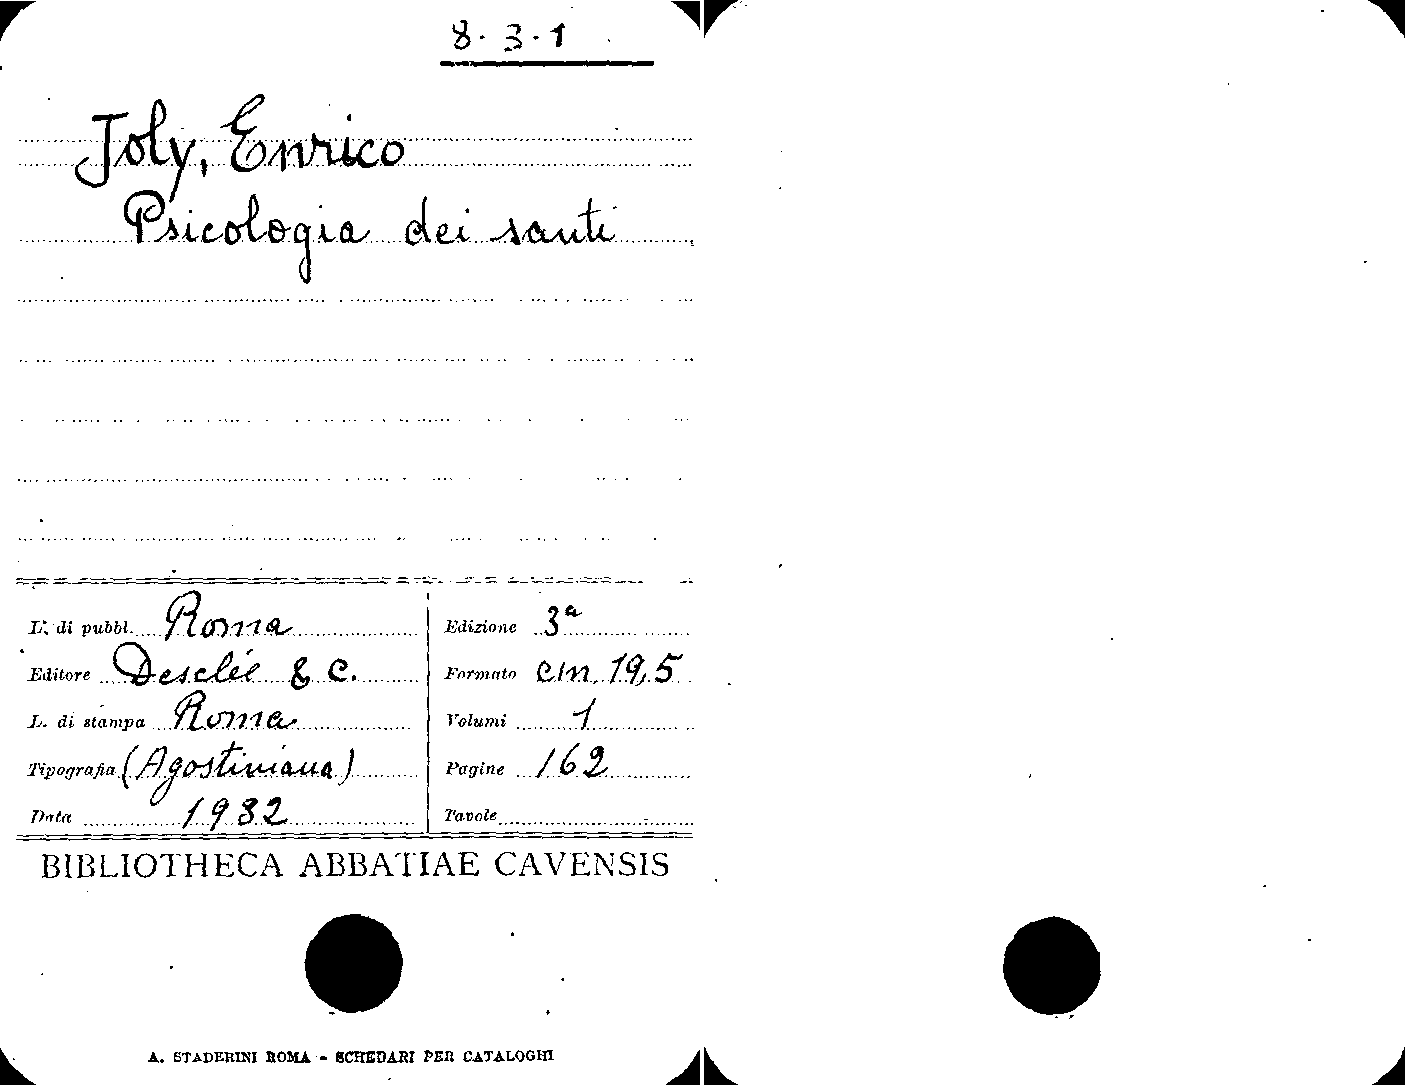 8-3-1
Joly, Enrico
Psicologia dei santi
L. di pubbl. Roma
Editore Desclée & C.
L. di stampa Roma
Tipografia (Agostiniana)
Data 1932
Edizione 3ª
Formato cm. 19,5
Volumi 1
Pagine 162
Tavole
BIBLIOTHECA ABBATIAE CAVENSIS
A. STADERINI ROMA - SCHEDARI PER CATALOGHI